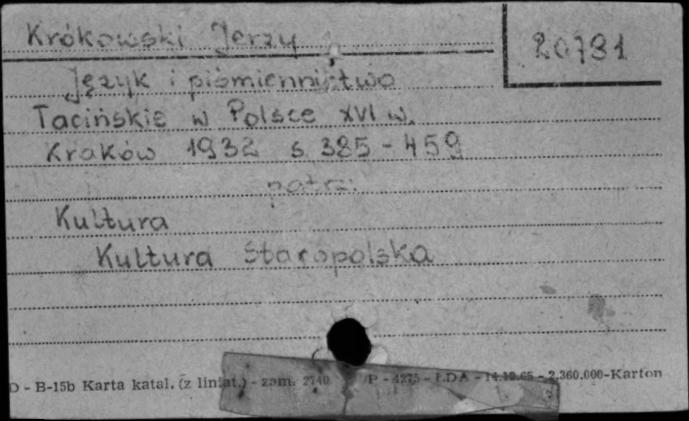 Krókowski Jerzy
20731
Język i piśmiennictwo
Łacińskie w Polsce XVI w.
Kraków 1932 s. 385-459
patrz:
Kultura
Kultura Staropolska
D - B-15b Karta katal. (z liniat.) - zam. 2740 /P - 4275 - LDA - 14.10.65 - 2.360.000-Karton